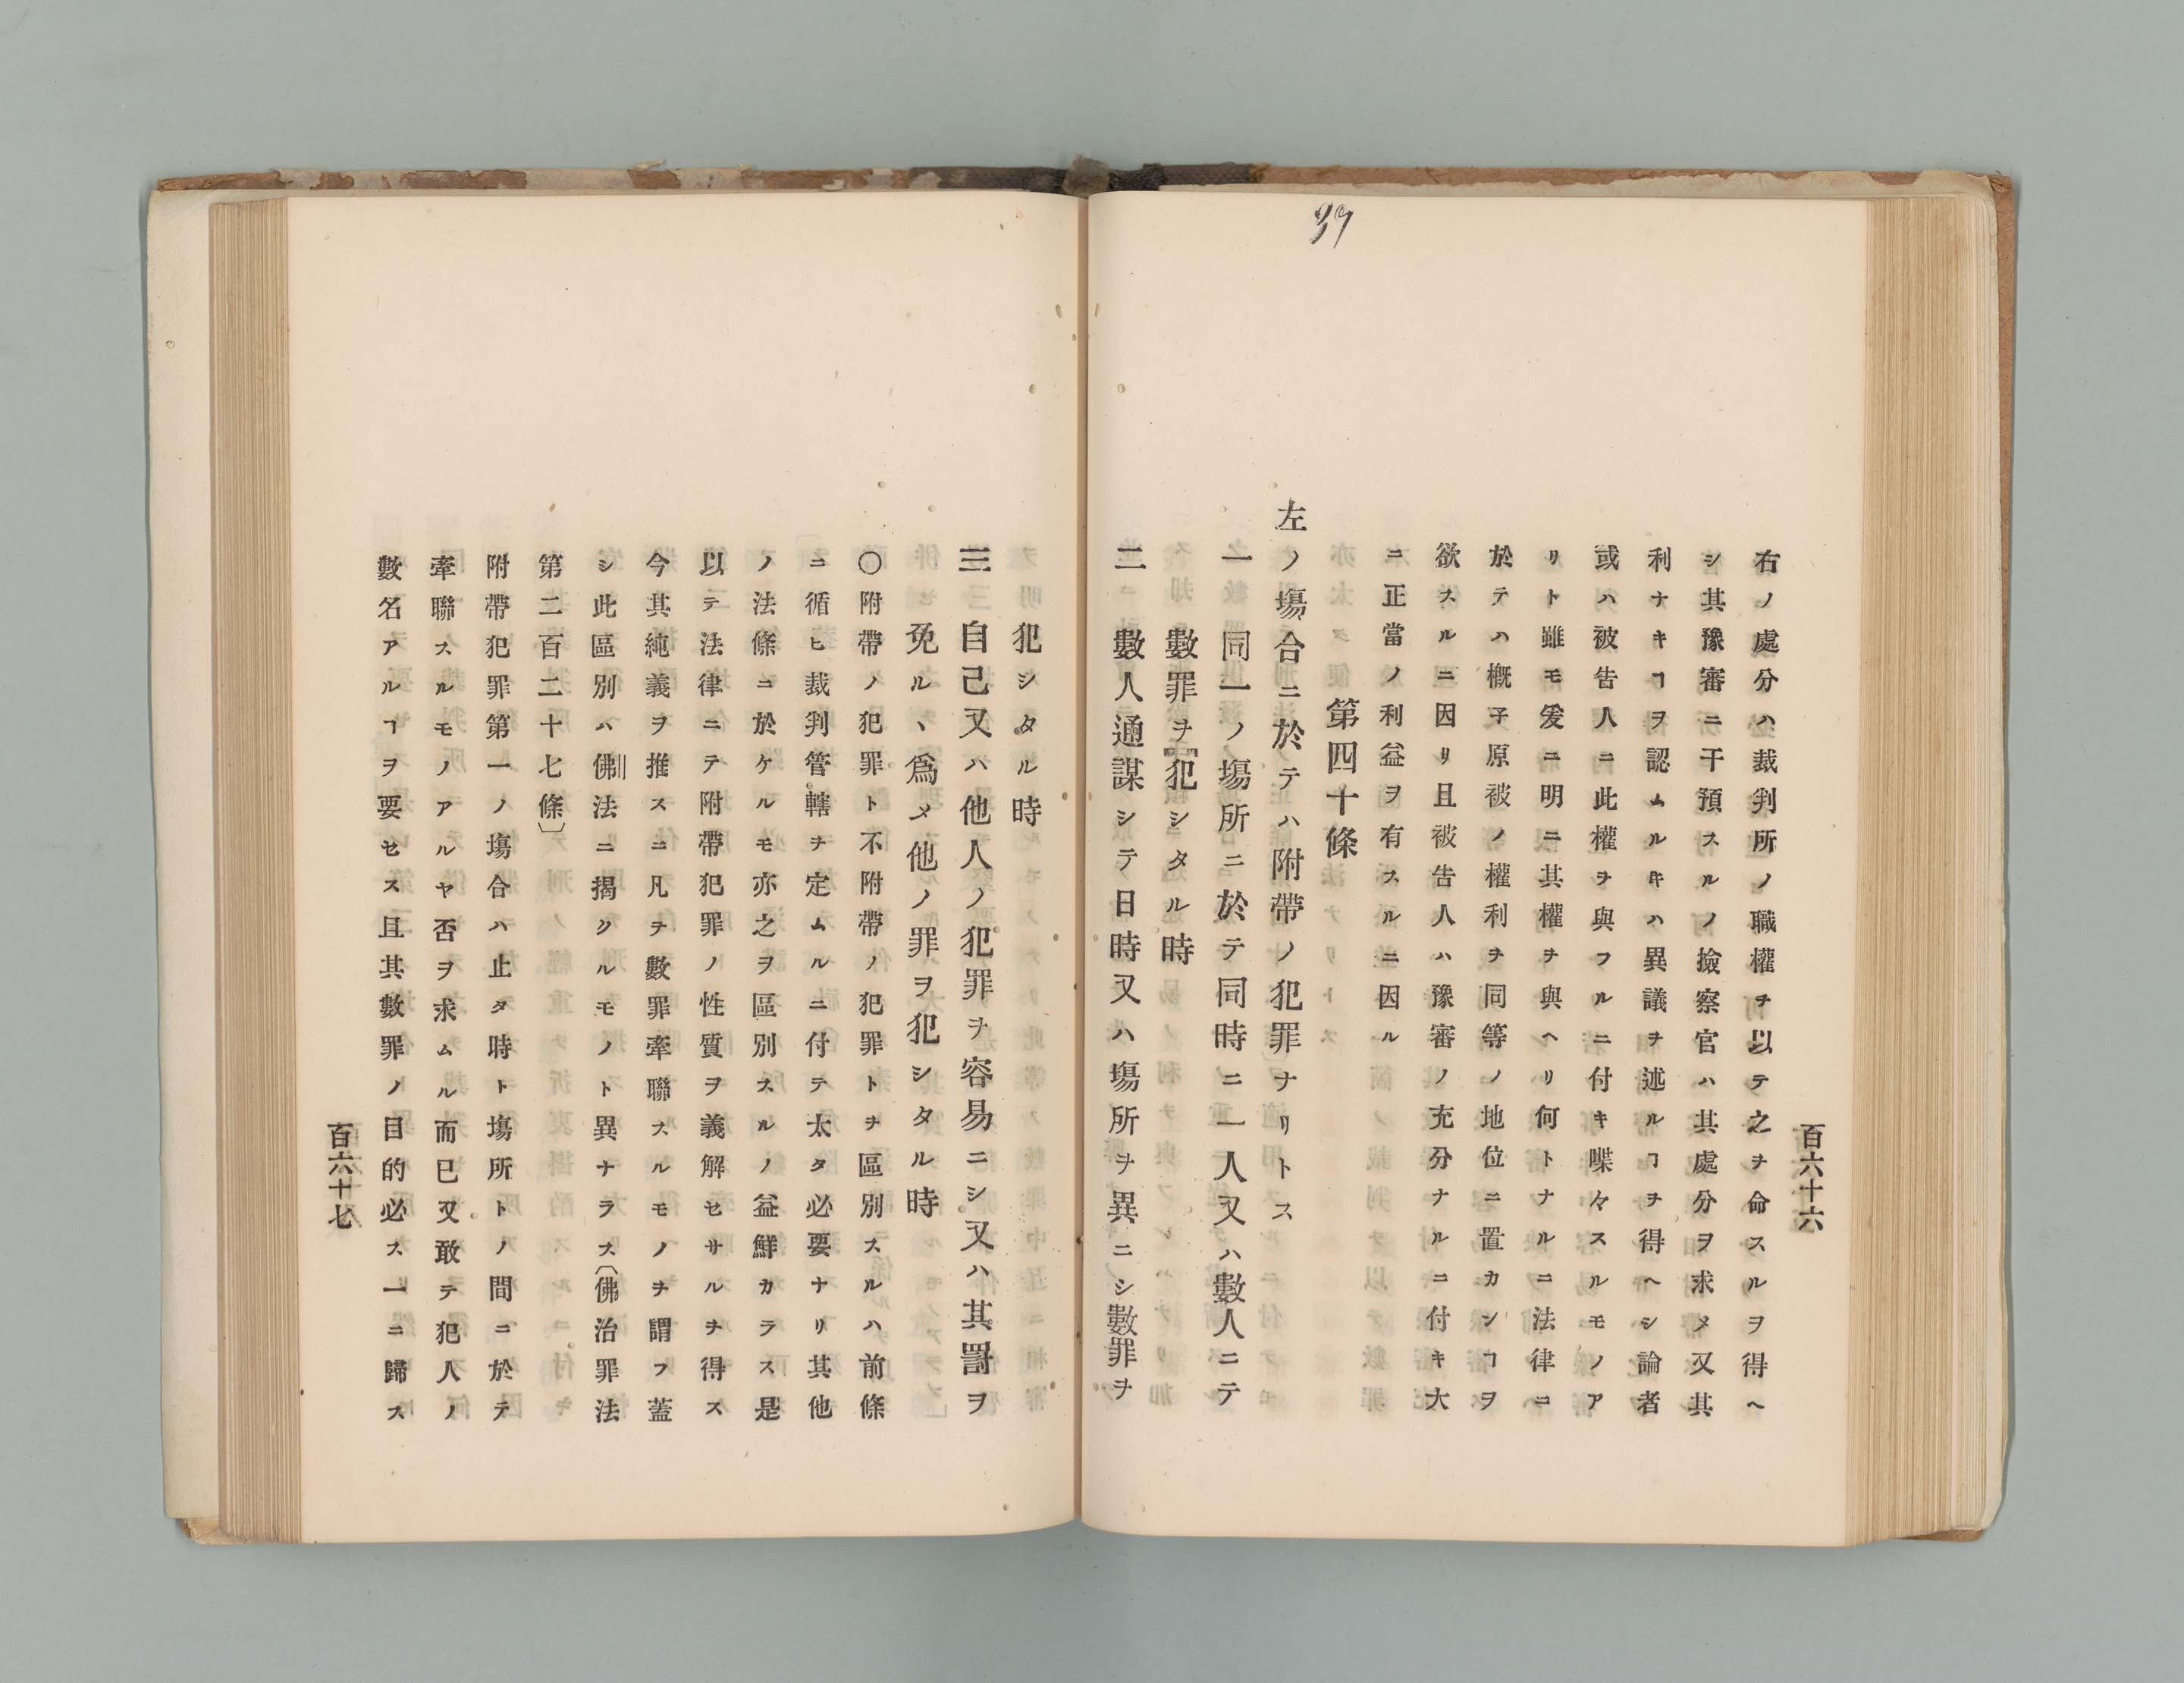 39
百六十六
右ノ處分ハ裁判所ノ職權ヲ以テ之ヲ命スルヲ得ヘ
シ其豫審ニ干預スルノ撿察官ハ其處分ヲ求メ又其
利ナキヿヲ認ムルキハ異議ヲ述ルヿヲ得ヘシ論者
或ハ被吿人ニ此權ヲ與フルニ付キ喋々スルモノア
リト雖モ爰ニ明ニ其權ヲ與ヘリ何トナルニ法律ニ
於テハ概子原被ノ權利ヲ同等ノ地位ニ置カンヿヲ
欲スルニ因リ且被吿人ハ豫審ノ充分ナルニ付キ大
ニ正當ノ利益ヲ有スルニ因ル
第四十條
左ノ塲合ニ於テハ附帶ノ犯罪ナリトス
一 同一ノ塲所ニ於テ同時ニ一人又ハ數人ニテ
數罪ヲ犯シタル時
二 數人通謀シテ日時又ハ塲所ヲ異ニシ數罪ヲ
犯シタル時
三 自己又ハ他人ノ犯罪ヲ容易ニシ又ハ其罰ヲ
免ルヽ爲メ他ノ罪ヲ犯シタル時
〇附帶ノ犯罪ト不附帶ノ犯罪トヲ區別スルハ前條
ニ循ヒ裁判管轄ヲ定ムルニ付テ太タ必要ナリ其他
ノ法條ニ於ケルモ亦之ヲ區別スルノ益鮮カラス是
以テ法律ニテ附帶犯罪ノ性質ヲ義解セサルヲ得ス
今其純義ヲ推スニ凡ヲ數罪牽聯スルモノヲ謂フ蓋
シ此區別ハ佛法ニ揭クルモノト異ナラス〔佛治罪法
第二百二十七條〕
附帶犯罪第一ノ塲合ハ止タ時ト塲所トノ間ニ於テ
牽聯スルモノアルヤ否ヲ求ムル而已又敢テ犯人ノ
數名アルヿヲ要セス且其數罪ノ目的必ス一ニ歸ス
百六十七